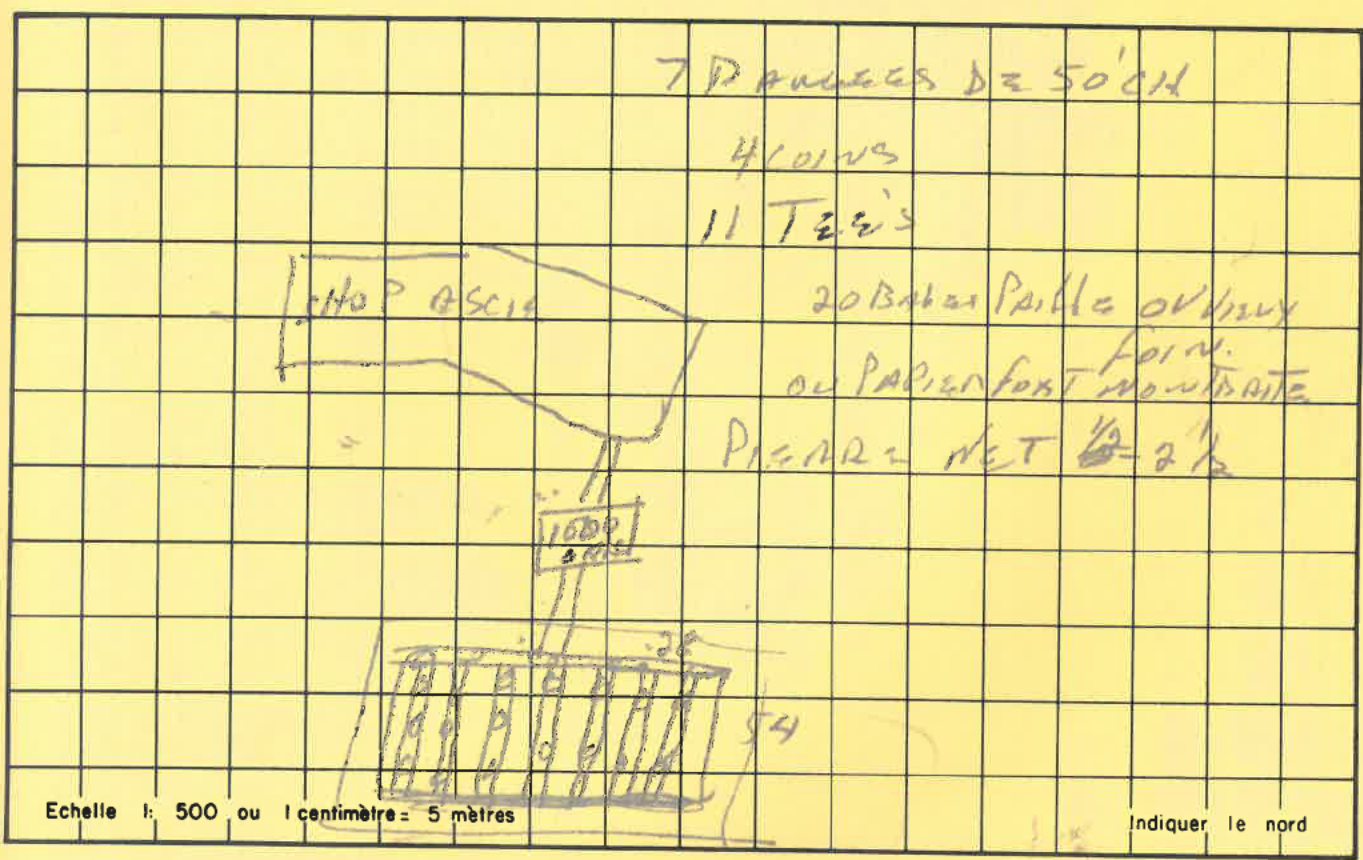 7 RANGEES DE 50' CH
4 COINS
11 TEE'S
20 Bales PAillE OU VIEUX
FOIN.
OU PAPIER FORT NON TRAITE
PIERRE NET 1/2 = 2 1/2
SHOP A SCIE
1000
28
54
Echelle 1: 500 ou 1 centimètre = 5 mètres
Indiquer le nord